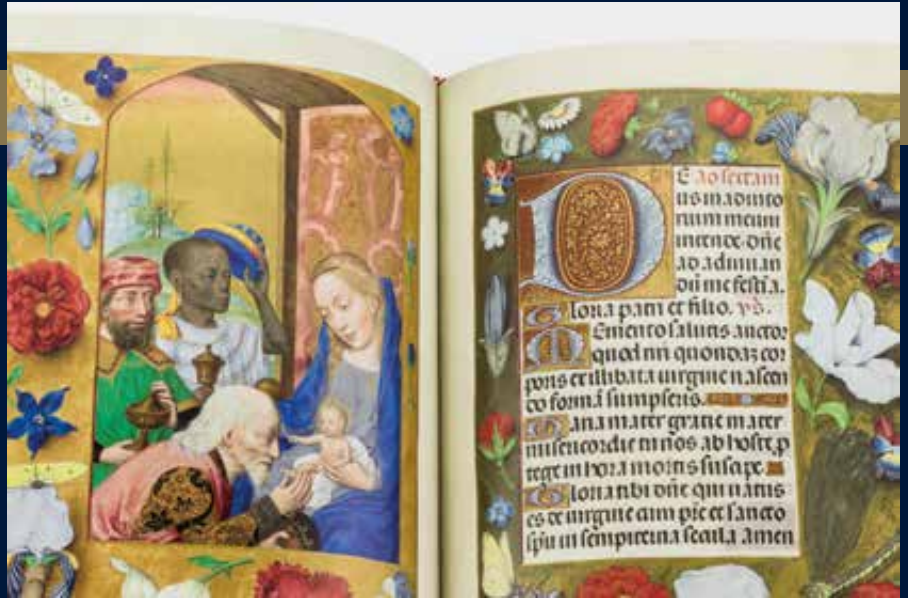 DE ad sextam
us in adiuto
rium meum
intende dñe
ad adiuuan
dū me festīa.
Gloria patri et filio. vs.
Memento salutis auctor
quod nrī quondaz cor
poris ex illibata uirgine nascen
do formā sumpseris.
Maria mater gratie mater
misericordie tu nos ab hoste p
tege in hora mortis suscipe.
Gloria tibi dñe qui natus
es de uirgine cum prē et sancto
spū in sempiterna secula amen